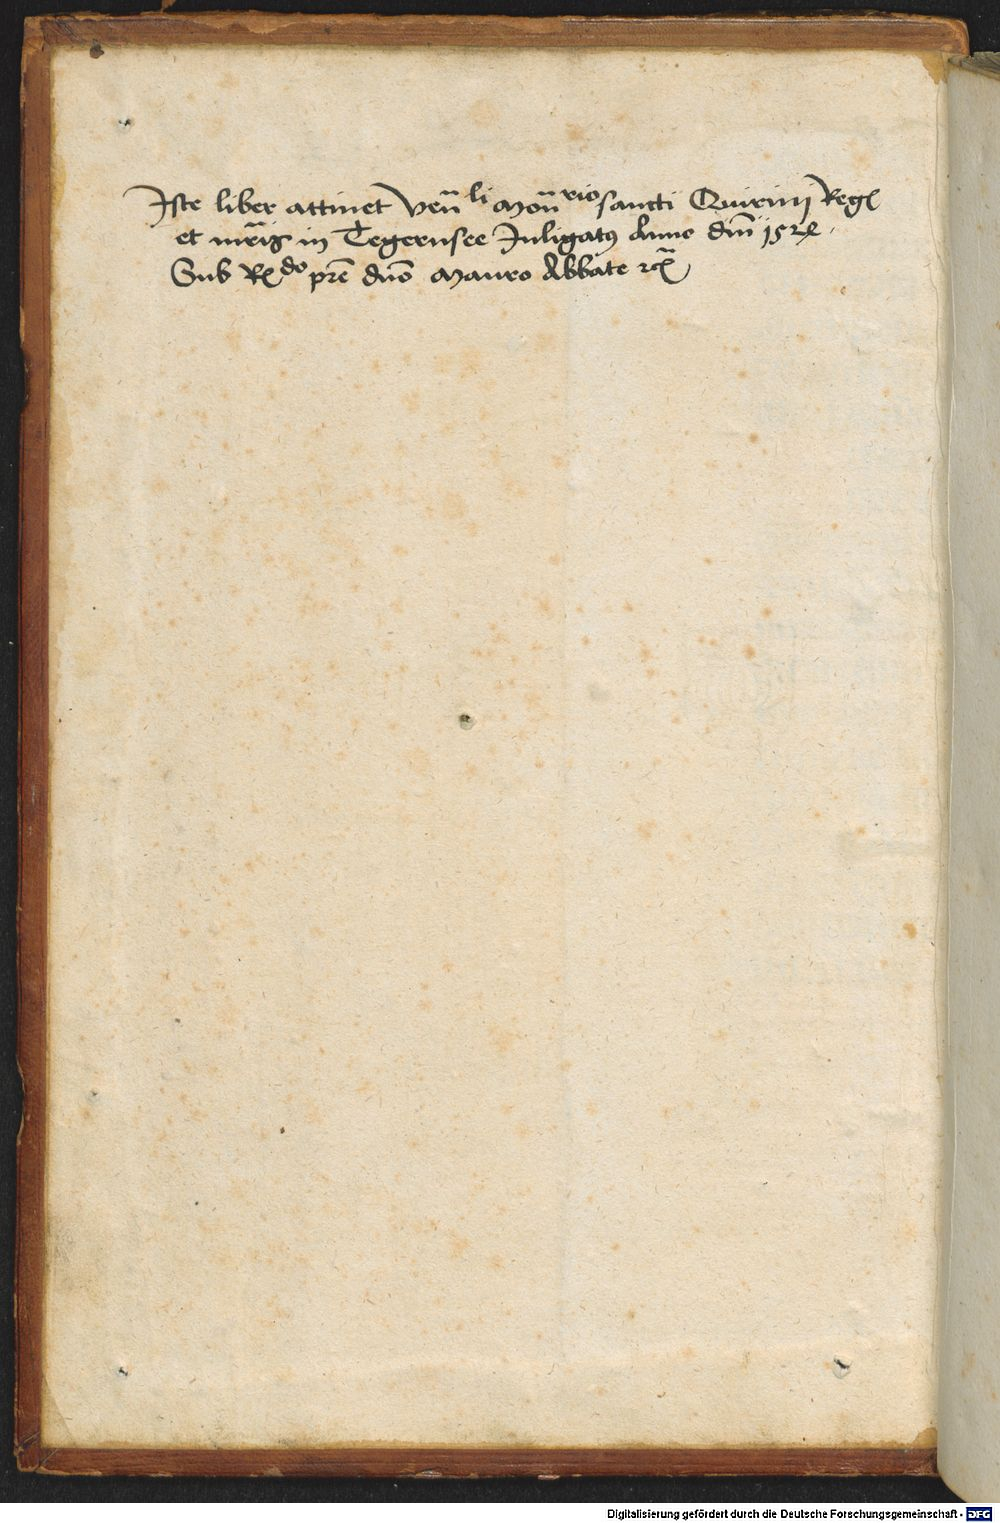 Iste liber attinet Ven̄li Mon̄rio sancti Quirinj Reg
et mr̄is in Tegernsee Inligatꝯ Anno dn̄i
Sub R do pr̄e dn̄o Mauro Abbate
Digitalisierung gefördert durch die Deutsche Forschungsgemeinschaft - DFG